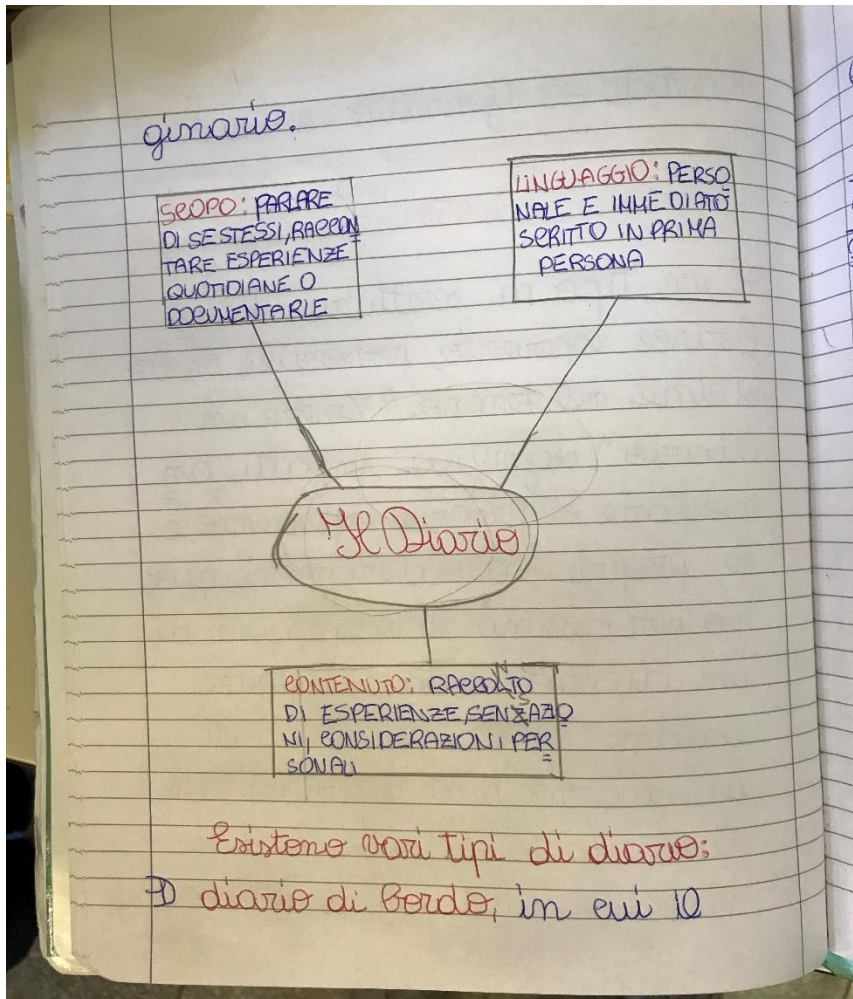 ginario.
SCOPO: PARLARE
DI SE STESSI, RACCON
TARE ESPERIENZE
QUOTIDIANE O
DOCUMENTARLE
LINGUAGGIO: PERSO
NALE E IMMEDIATO
SCRITTO IN PRIMA
PERSONA
Il Diario
CONTENUTO: RACCONTO
DI ESPERIENZE, SENSAZIO
NI, CONSIDERAZIONI PER
SONALI
Esistono vari tipi di diario:
diario di bordo, in cui